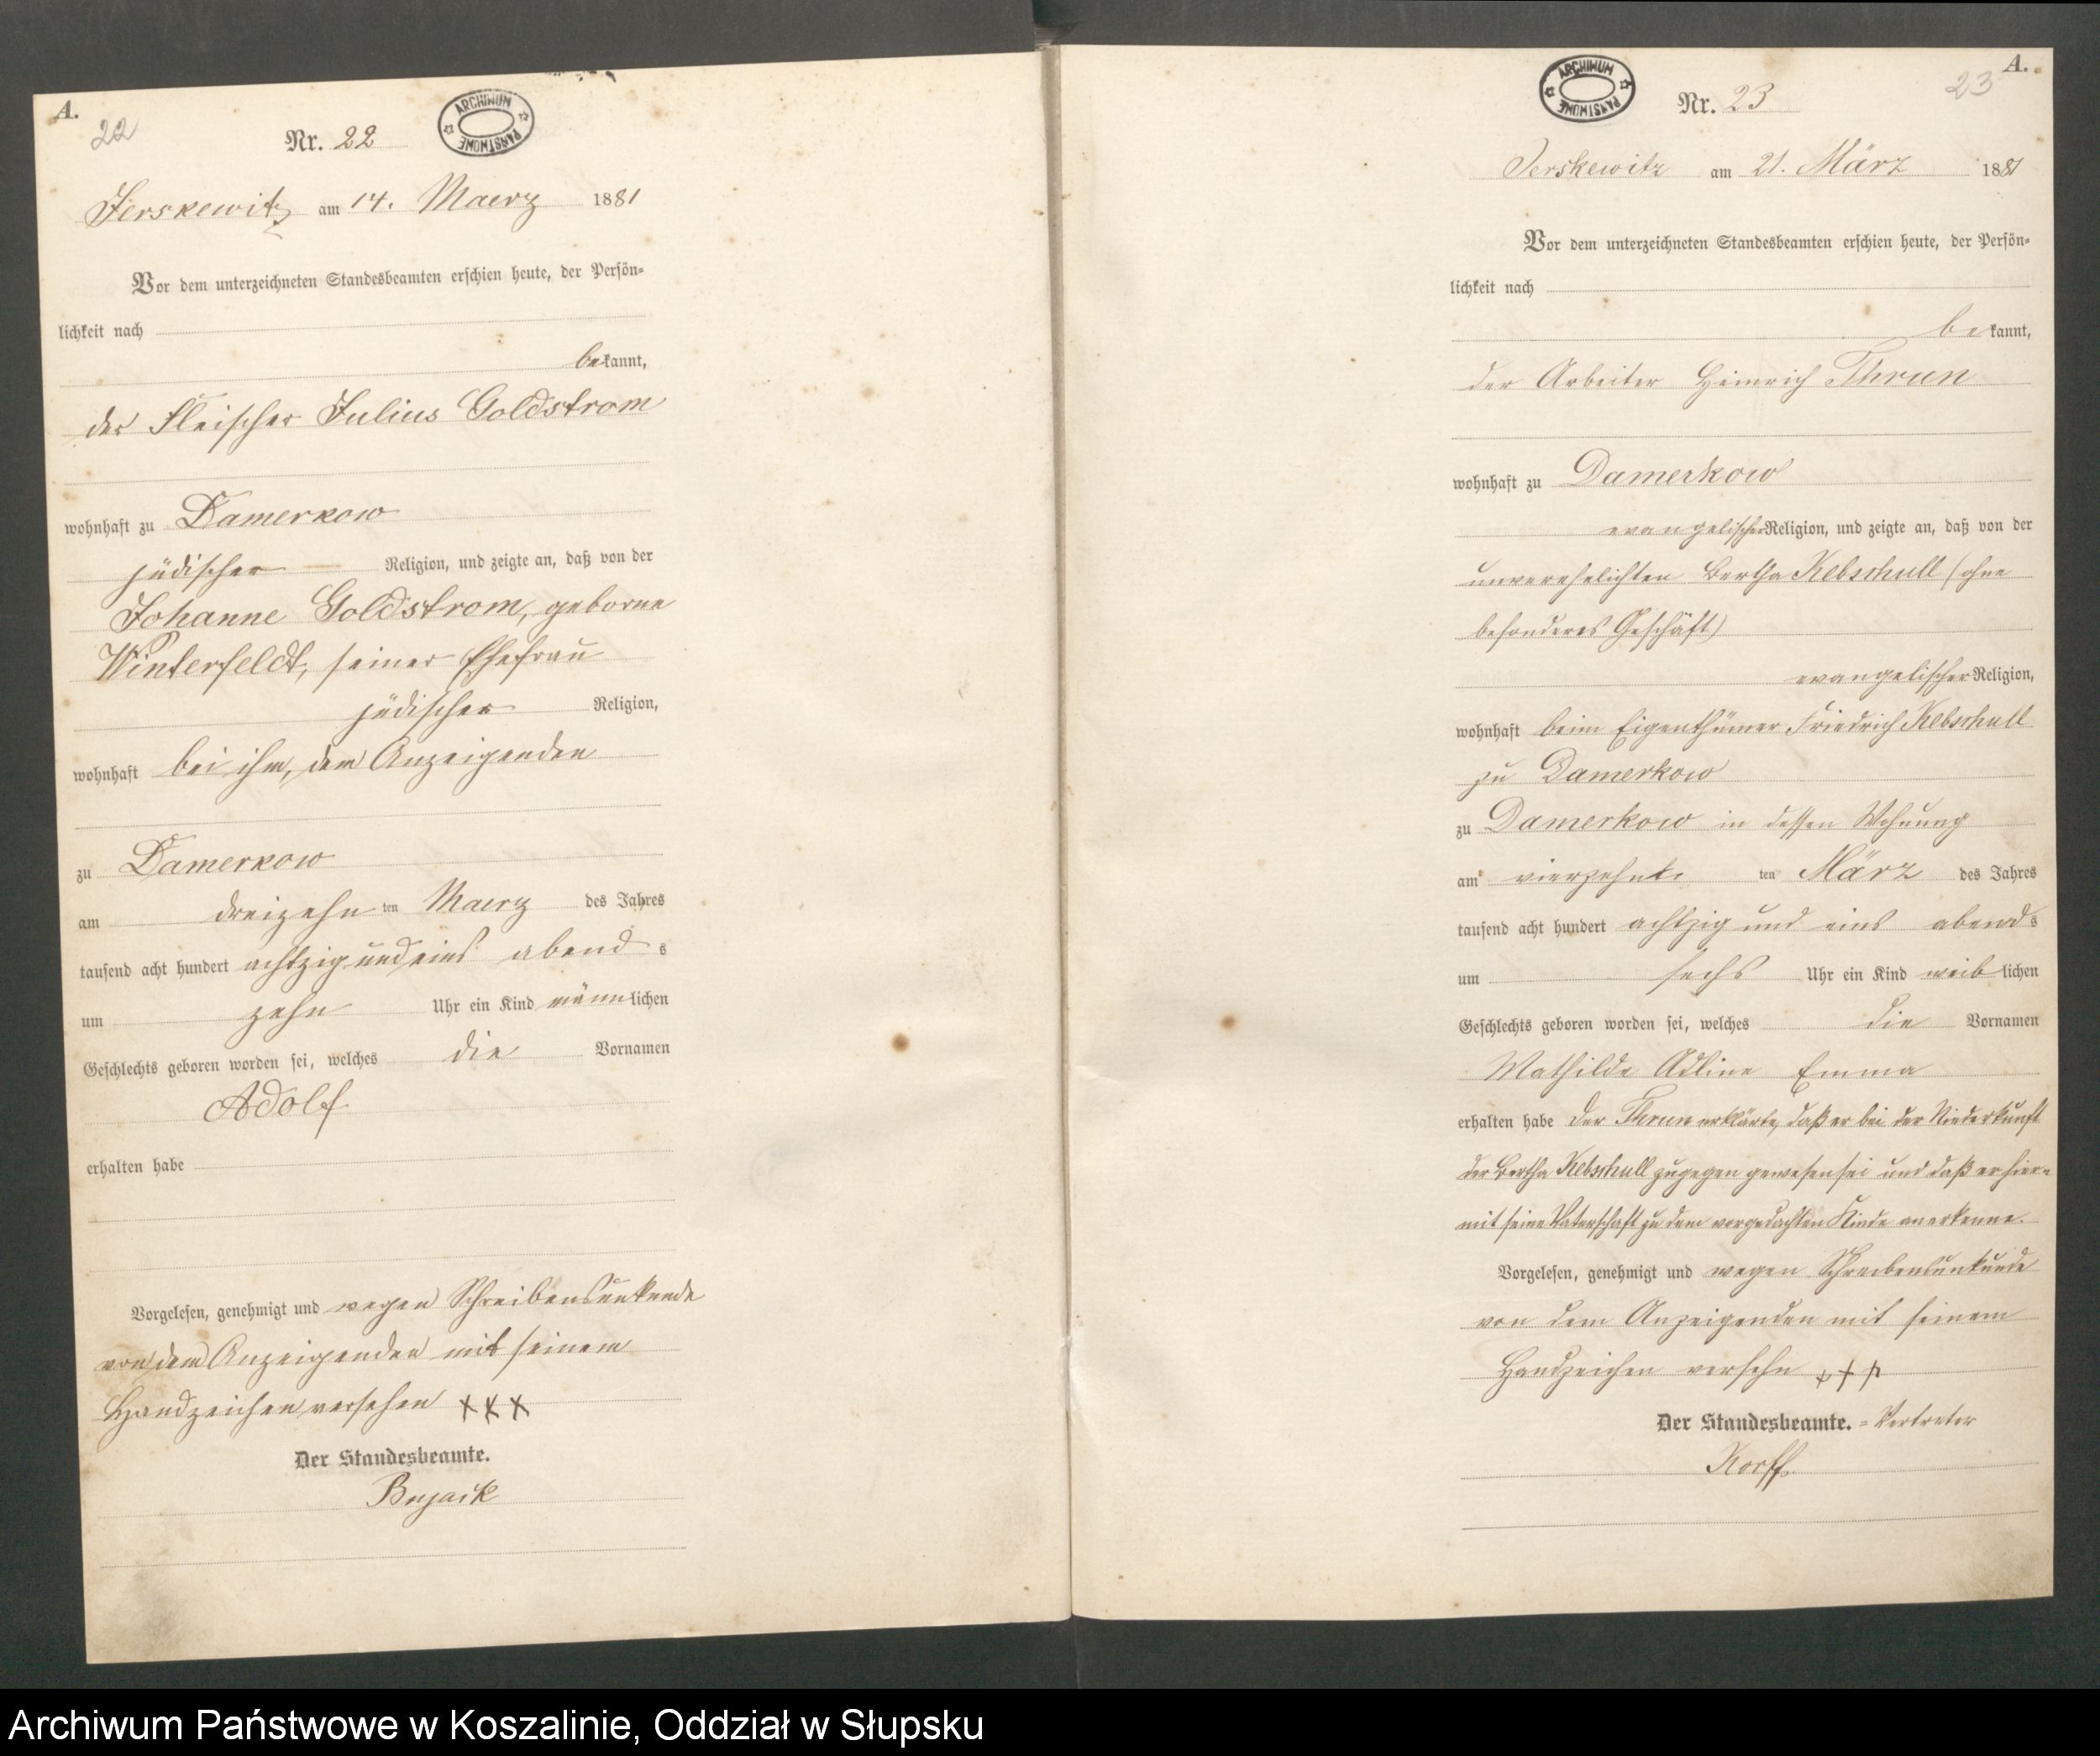 A.
22
Nr. 22
ARCHIWUM PAŃSTWOWE
Jerskewitz am 14. Maerz 1881
Vor dem unterzeichneten Standesbeamten erschien heute, der Persön-
lichkeit nach
bekannt,
der Fleischer Julius Goldstrom
wohnhaft zu Damerkow
jüdischer Religion, und zeigte an, daß von der
Johanne Goldstrom, geborne
Winterfeldt, seiner Ehefrau
jüdischer Religion,
wohnhaft bei ihm, dem Anzeigenden
zu Damerkow
am dreizehn ten Maerz des Jahres
tausend acht hundert achtzig und eins abend s
um zehn Uhr ein Kind männlichen
Geschlechts geboren worden sei, welches die Vornamen
Adolf
erhalten habe
Vorgelesen, genehmigt und wegen Schreibensunkunde
von dem Anzeigenden mit seinem
Handzeichen versehen xxx
Der Standesbeamte.
A.
23
Nr. 23
ARCHIWUM PAŃSTWOWE
Jerskewitz am 21. März 1881
Vor dem unterzeichneten Standesbeamten erschien heute, der Persön-
lichkeit nach
bekannt,
der Arbeiter Heinrich Thrun
wohnhaft zu Damerkow
evangelischer Religion, und zeigte an, daß von der
unverehelichten Bertha Kebschull (ohne
besonderes Geschäft)
evangelischer Religion,
wohnhaft beim Eigenthümer Friedrich Kebschull
zu Damerkow
zu Damerkow in dessen Wohnung
am vierzehnte ten März des Jahres
tausend acht hundert achtzig und eins abends
um sechs Uhr ein Kind weiblichen
Geschlechts geboren worden sei, welches die Vornamen
Mathilde Adline Emma
erhalten habe Der Thrun erklärte, daß er bei der Niederkunft
der Bertha Kebschull zugegen gewesen sei und daß er hier-
mit seine Vaterschaft zu dem vorgedachten Kinde anerkenne.
Vorgelesen, genehmigt und wegen Schreibensunkunde
von dem Anzeigenden mit seinem
Handzeichen versehn +++
Der Standesbeamte. = Vertreter
Korff
Archiwum Państwowe w Koszalinie, Oddział w Słupsku